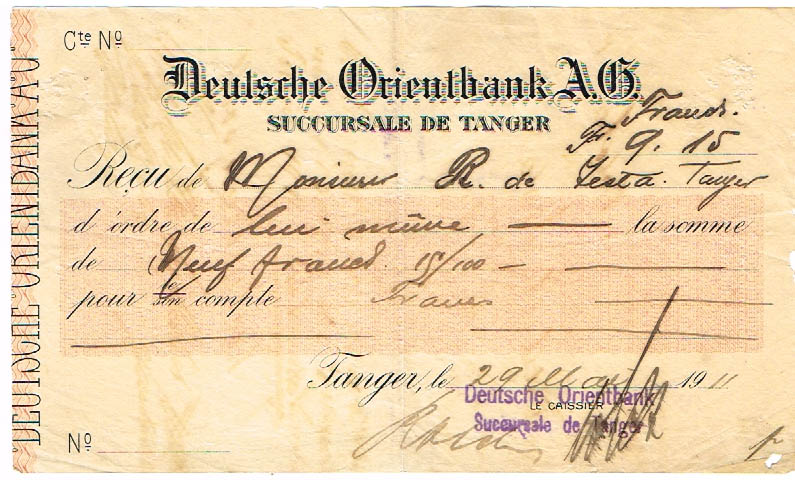 Cte No
Deutsche Orientbank A.G.
SUCCURSALE DE TANGER
Francs.
Fr. 9.15
Reçu de Monsieur R. de Testa. Tanger
d'ordre de lui même la somme
de Neuf francs 15/100
pour son compte Francs
Tanger, le 29 1911
Deutsche Orientbank
LE CAISSIER
Succursale de Tanger
No
DEUTSCHE ORIENTBANK A.G.